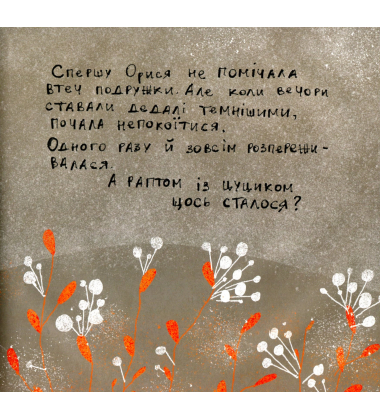 Спершу Орися не помічала
втеч подружки. Але коли вечори
ставали дедалі темнішими,
почала непокоїтися.
Одного разу й зовсім розпережи-
валася.
А раптом із цуциком
щось сталося?